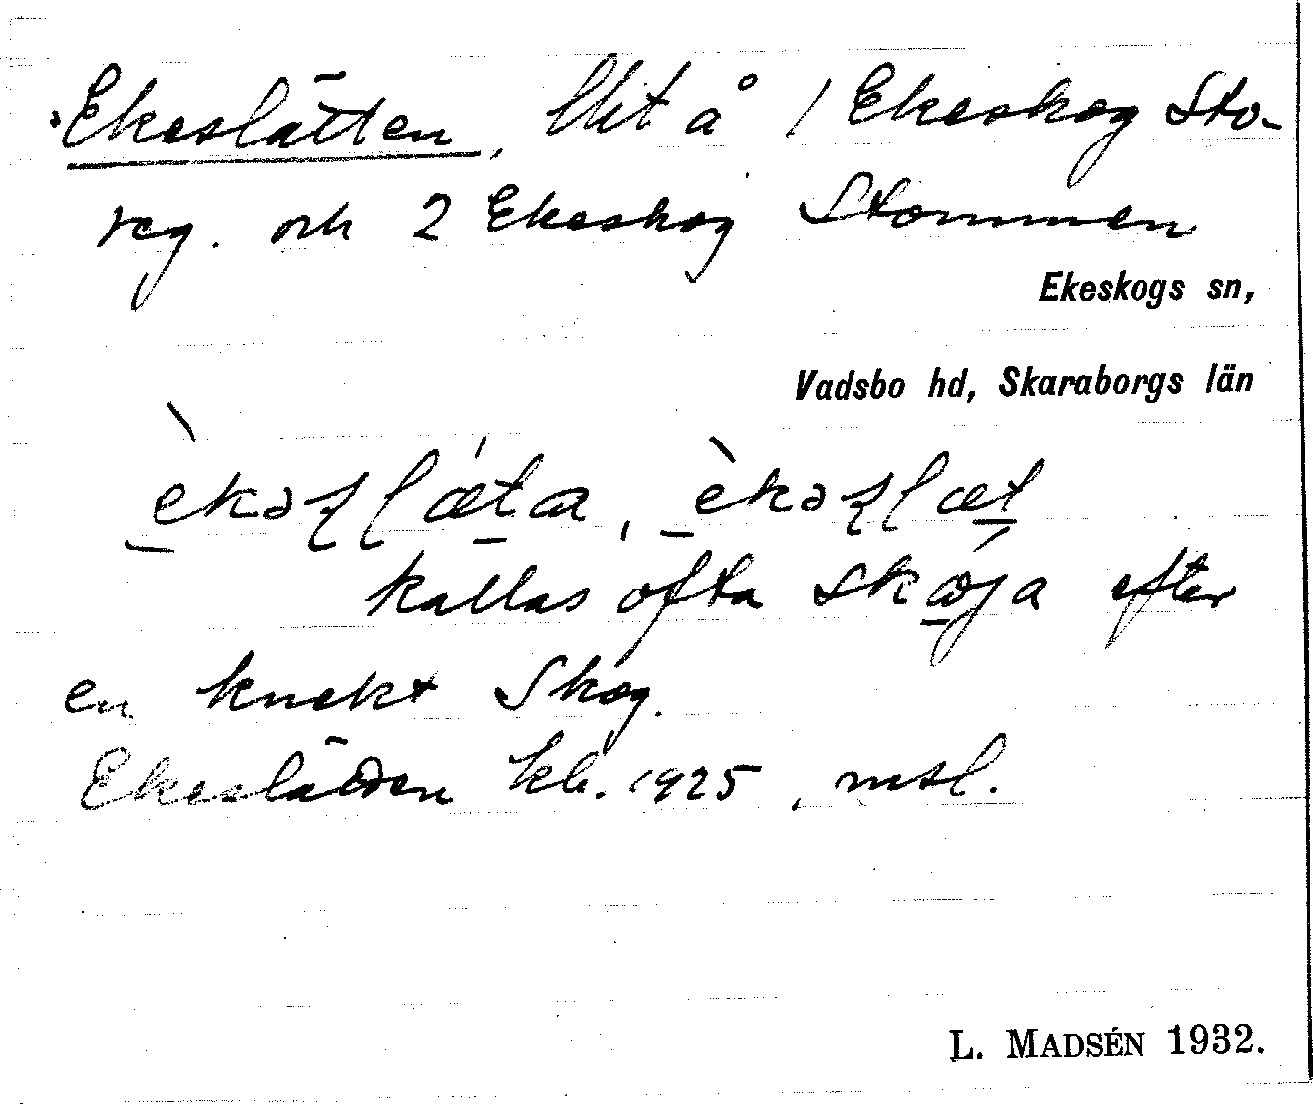 Ekeslätten, llt å 1 Ekeskog Sto-
reg. och 2 Ekeskog Stommen
Ekeskogs sn,
Vadsbo hd, Skaraborgs län
èkəslæ̀ta, èkəslæt
kallas ofta skǽja efter
en knekt Skog.
Ekeslätten kb. 1925, mtsl.
L. MADSÉN 1932.